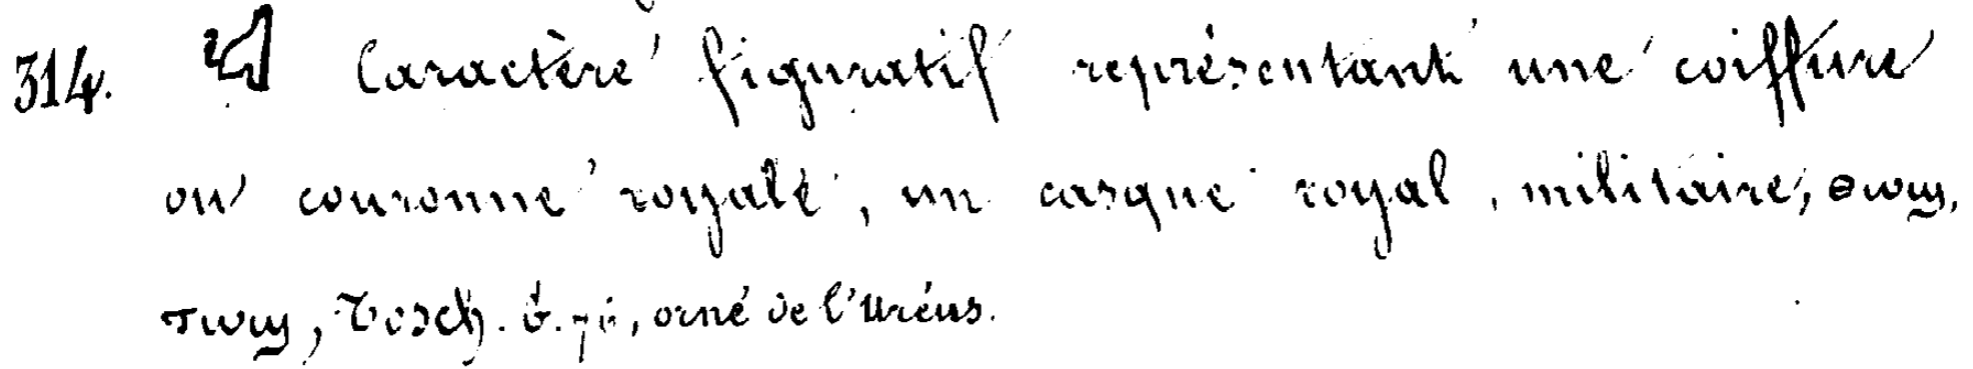 314. Caractère figuratif représentant une coiffure
ou couronne royale, un casque royal, militaire, ⲑⲱϣ,
ⲧⲱϣ, Tosch. G. , orné de l'Uréus.